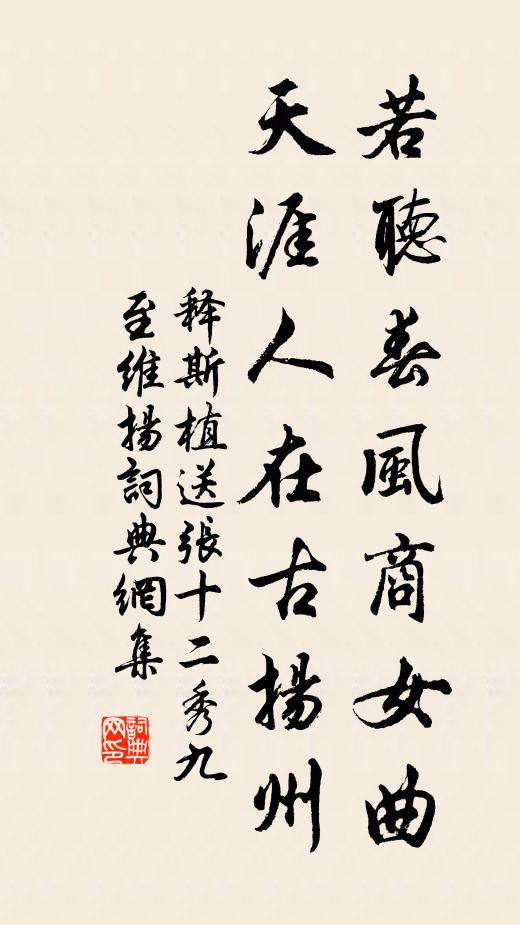 若聽春風商女曲
天涯人在古揚州
释斯植送張十二秀九
至維揚詞典網集
詞典
网印